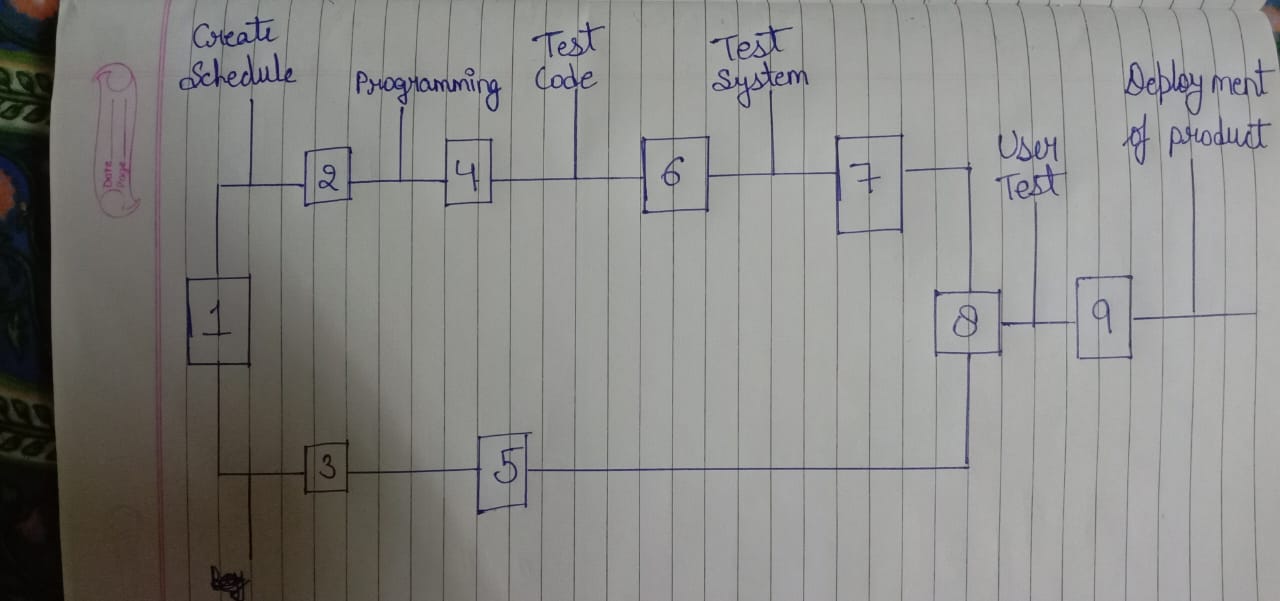 Create
Schedule
Programming
Test
Code
Test
System
Deployment
of product
User
Test
2
4
6
7
1
8
9
3
5
Date
Page